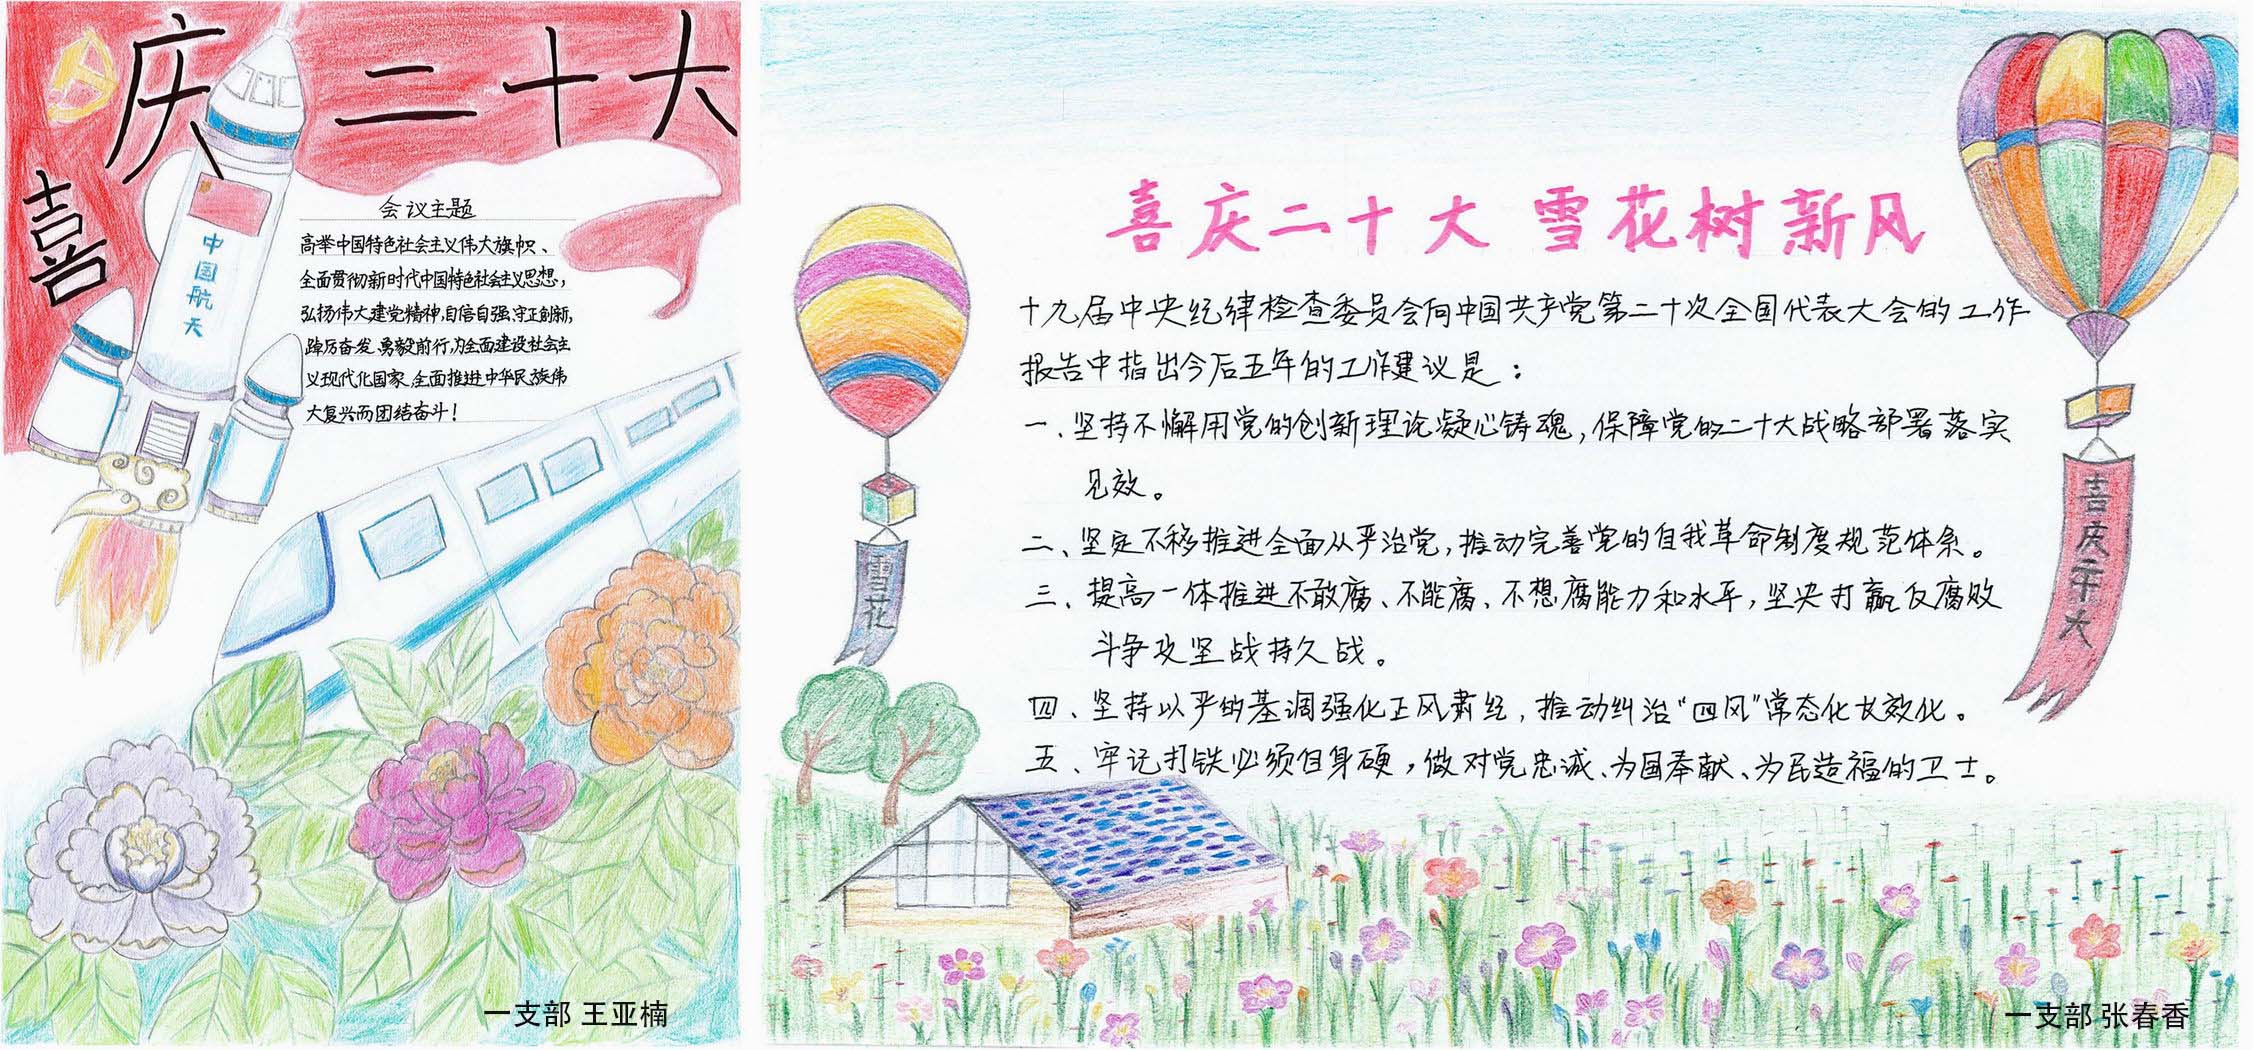 喜庆二十大
中国航天
会议主题
高举中国特色社会主义伟大旗帜、
全面贯彻新时代中国特色社会主义思想，
弘扬伟大建党精神，自信自强、守正创新，
踔厉奋发、勇毅前行，为全面建设社会主
义现代化国家、全面推进中华民族伟
大复兴而团结奋斗！
一支部 王亚楠
喜庆二十大 雪花树新风
十九届中央纪律检查委员会向中国共产党第二十次全国代表大会的工作
报告中指出今后五年的工作建议是：
一、坚持不懈用党的创新理论凝心铸魂，保障党的二十大战略部署落实
见效。
二、坚定不移推进全面从严治党，推动完善党的自我革命制度规范体系。
三、提高一体推进不敢腐、不能腐、不想腐能力和水平，坚决打赢反腐败
斗争攻坚战持久战。
四、坚持以严的基调强化正风肃纪，推动纠治“四风”常态化长效化。
五、牢记打铁必须自身硬，做对党忠诚、为国奉献、为民造福的卫士。
雪花
喜庆二十大
一支部 张春香